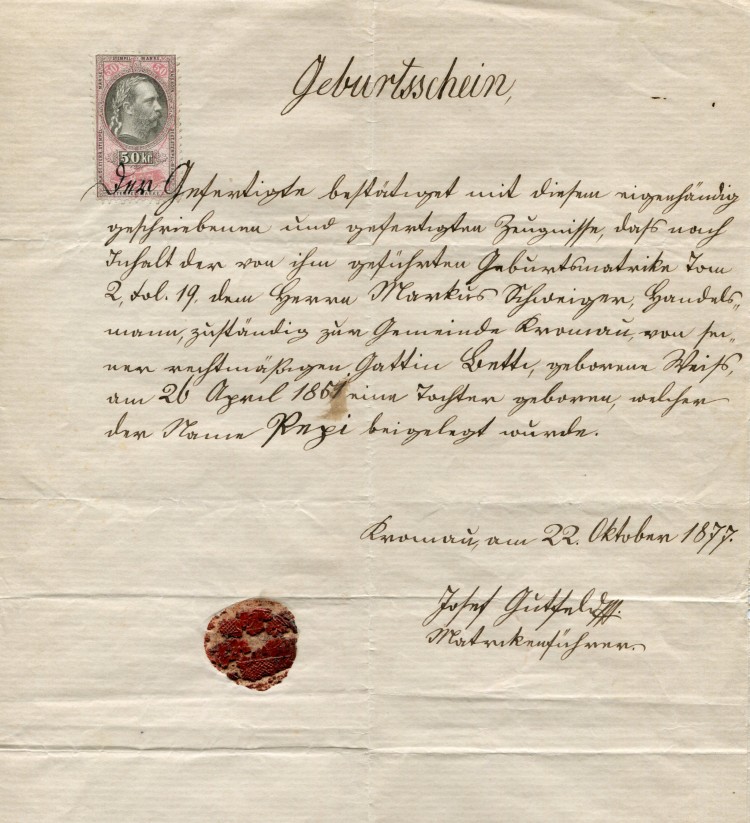 Geburtsschein,
50 50
50 kr
Der Gefertigte bestätiget mit diesem eigenhändig
geschriebenen und gefertigten Zeugnisse, dass nach
Inhalt der von ihm geführten Geburtsmatrike Tom
2, Fol. 19, dem Herrn Markus Schweiger, Handels-
mann, zuständig zur Gemeinde Kromau, von sei-
ner rechtmäßigen Gattin Betti, geborene Weiss,
am 26 April 1861 eine Tochter geboren, welcher
der Name Pepi beigelegt wurde.
Kromau, am 22. Oktober 1877.
Josef Gutfeld
Matrikenführer.